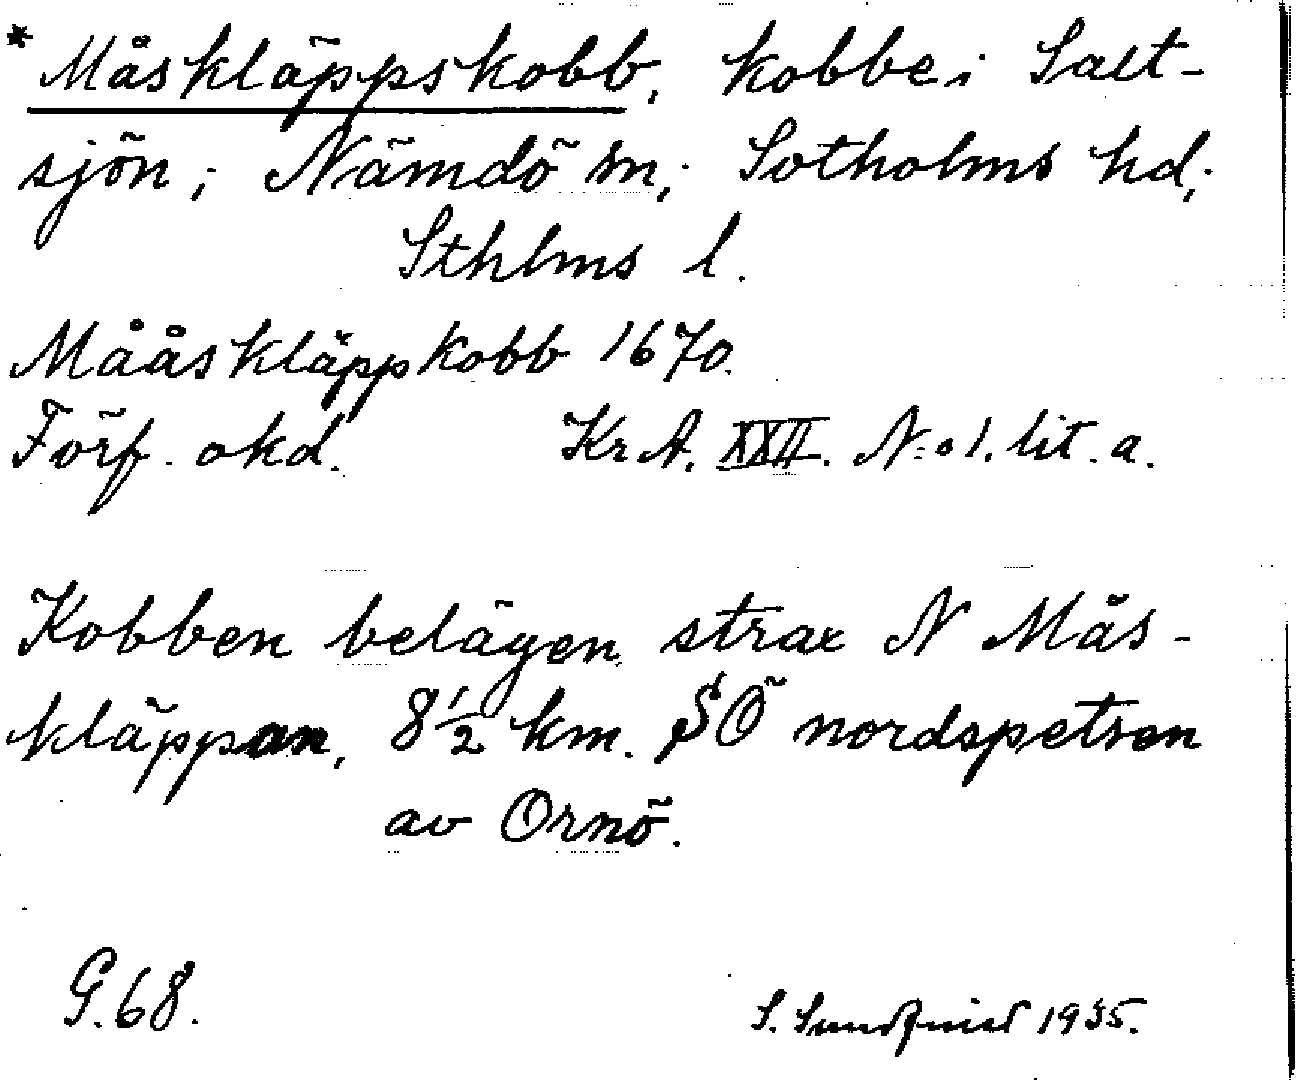 * Måskläppskobb, kobbe i Salt-
sjön; Nämdö sn; Sotholms hd;
Sthlms l.
Mååskläppkobb 1670.
Förf. okd. Kr A. XXII. N:o 1. lit. a.
Kobben belägen strax N Mås-
kläppan, 8 1/2 km. SÖ nordspetsen
av Ornö.
G. 68.
S. Sundqvist 1935.